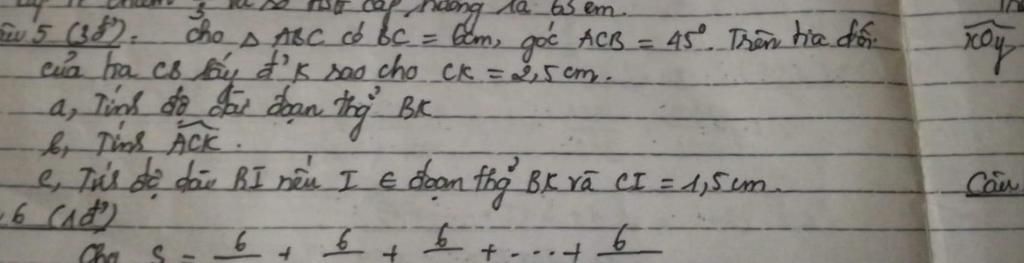 cấp hoàng là 63 em.
5 (3đ). Cho Δ ABC có BC = 6cm, góc ACB = 45°. Trên tia đối
của tia CB lấy đ' K sao cho CK = 2,5cm.
a, Tính độ dài đoạn thg̉ BK
b, Tính ACK.
c, Tính độ dài BI nếu I ∈ đoạn thg̉ BK và CI = 1,5cm.
6 (1đ)
Cho S = 6 + 6 + 6 + ... + 6
xOy
Câu